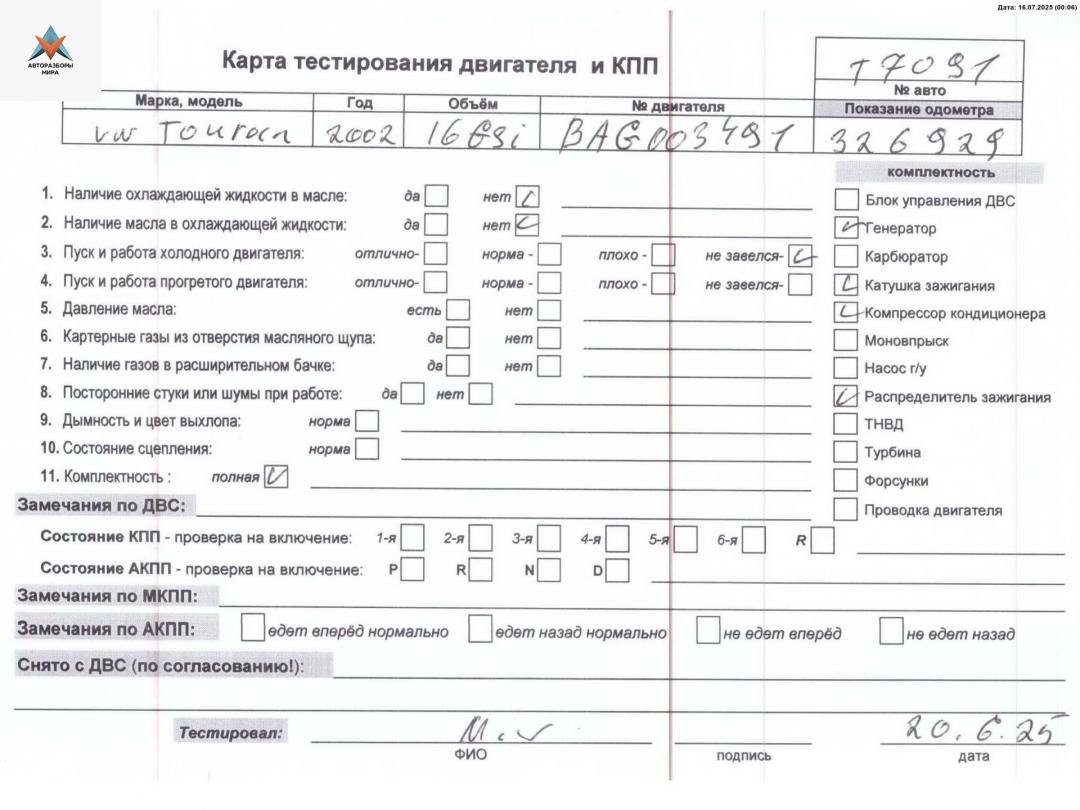 Дата: 16.07.2025 (00:06)
АВТОРАЗБОРЫ
МИРА
Карта тестирования двигателя и КПП
T7091
№ авто
Марка, модель Год Объём № двигателя Показание одометра
vw Touran 2002 16 Fsi BAG003491 326929
комплектность
1. Наличие охлаждающей жидкости в масле: да нет
Блок управления ДВС
2. Наличие масла в охлаждающей жидкости: да нет
Генератор
3. Пуск и работа холодного двигателя: отлично- норма - плохо - не завелся-
Карбюратор
4. Пуск и работа прогретого двигателя: отлично- норма - плохо - не завелся-
Катушка зажигания
5. Давление масла: есть нет
Компрессор кондиционера
6. Картерные газы из отверстия масляного щупа: да нет
Моновпрыск
7. Наличие газов в расширительном бачке: да нет
Насос г/у
8. Посторонние стуки или шумы при работе: да нет
Распределитель зажигания
9. Дымность и цвет выхлопа: норма
ТНВД
10. Состояние сцепления: норма
Турбина
11. Комплектность : полная
Форсунки
Замечания по ДВС:
Проводка двигателя
Состояние КПП - проверка на включение: 1-я 2-я 3-я 4-я 5-я 6-я R
Состояние АКПП - проверка на включение: P R N D
Замечания по МКПП:
Замечания по АКПП: едет вперёд нормально едет назад нормально не едет вперёд не едет назад
Снято с ДВС (по согласованию!):
Тестировал: 20.6.25
ФИО подпись дата